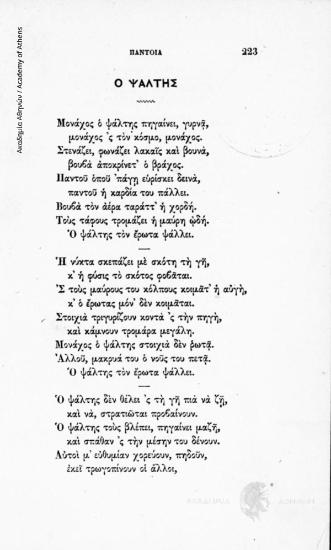 ΠΑΝΤΟΙΑ 223
Ο ΨΑΛΤΗΣ
Μονάχος ὁ ψάλτης πηγαίνει, γυρνᾷ,
μονάχος 'ς τὸν κόσμο, μονάχος.
Στενάζει, φωνάζει λακαῖς καὶ βουνά,
βουβὰ ἀποκρίνετ' ὁ βράχος.
Παντοῦ ὁποῦ πάγῃ εὑρίσκει δεινά,
παντοῦ ἡ καρδία του πάλλει.
Βουβὰ τὸν ἀέρα ταράττ' ἡ χορδή.
Τοὺς τάφους τρομάζει ἡ μαύρη ᾠδή.
Ὁ ψάλτης τὸν ἔρωτα ψάλλει.
Ἡ νύκτα σκεπάζει μὲ σκότη τὴ γῆ,
κ' ἡ φύσις τὸ σκότος φοβᾶται.
Ἐς τοὺς μαύρους του κόλπους κοιμᾶτ' ἡ αὐγὴ,
κ' ὁ ἔρωτας μόν' δὲν κοιμᾶται.
Στοιχιὰ τριγυρίζουν κοντὰ 'ς τὴν πηγὴ,
καὶ κάμνουν τρομάρα μεγάλη.
Μονάχος ὁ ψάλτης στοιχιὰ δὲν ῥωτᾷ.
Ἀλλοῦ, μακρυὰ του ὁ νοῦς του πετᾷ.
Ὁ ψάλτης τὸν ἔρωτα ψάλλει.
Ὁ ψάλτης δὲν θέλει 'ς τὴ γῆ πιὰ νὰ ζῇ,
καὶ νὰ, στρατιῶται προβαίνουν.
Ὁ ψάλτης τοὺς βλέπει, πηγαίνει μαζῆ,
καὶ σπάθαν 'ς τὴν μέσην του δένουν.
Αὐτοὶ μ' εὐθυμίαν χορεύουν, πηδοῦν,
ἐκεῖ τρωγοπίνουν οἱ ἄλλοι,
Ακαδημία Αθηνών / Academy of Athens